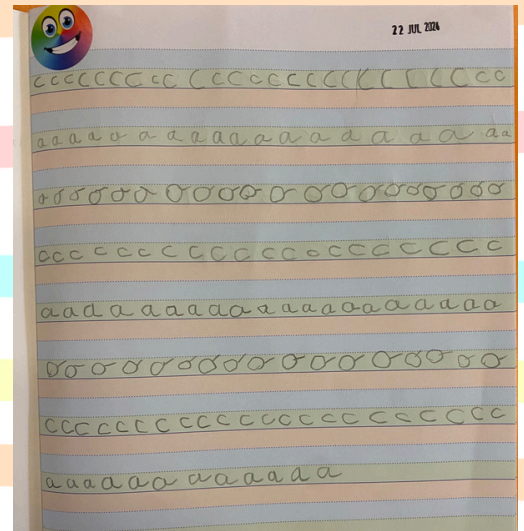 22 JUL 2024
c c c c c c c c c c c c c c c c c c c c c c c c c c
a a a a a a a a a a a a a a a a a a a
o o o o o o o o o o o o o o o o o o o o o o
c c c c c c c c c c c c c o c c c c c c c c
a a a a a a a a a a a a a a a a a a a a
o o o o o o o o o o o o o o o o o o o
c c c c c c c c c c c c c c c c c c c c c c c
a a a a a a a a a a a a a